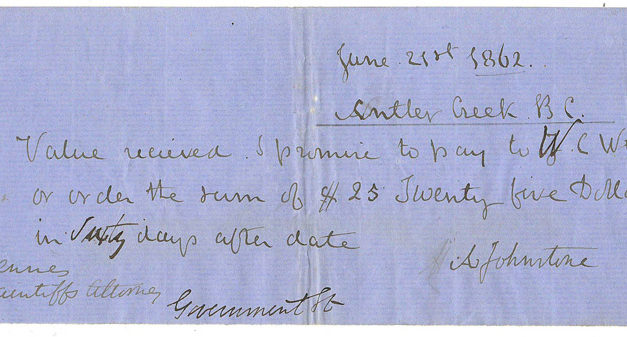 June 21st 1862.
Antler Creek B C.
Value recieved I promise to pay to W C
or order the sum of $ 25 Twenty five Dolla
in Sixty days after date
A Johnstone
ennes
aintiffs Attorney
Government St